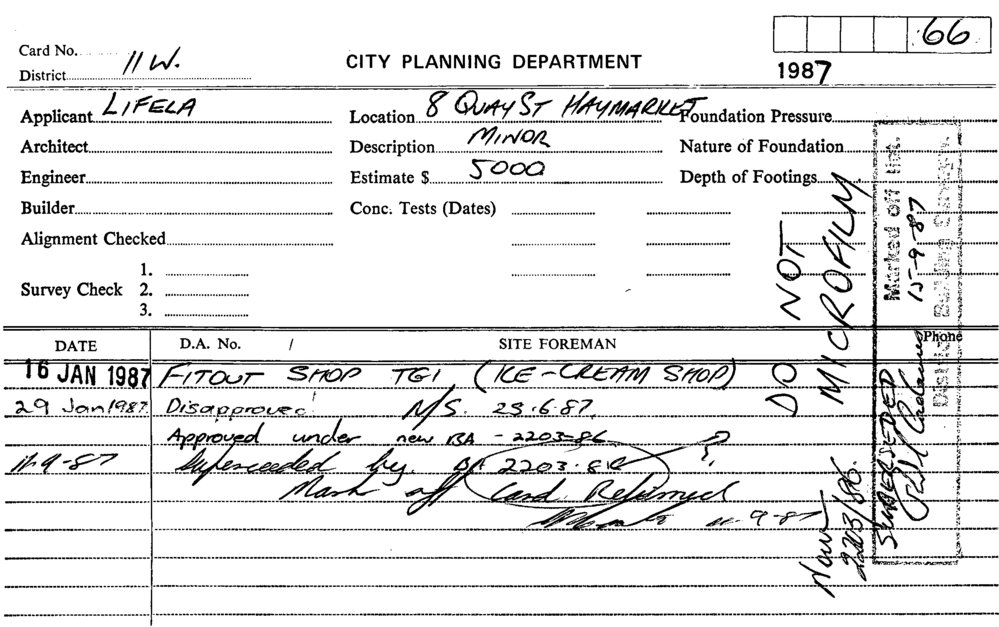 66
Card No.
District 11 W.
CITY PLANNING DEPARTMENT
1987
Applicant LIFELA
Location 8 QUAY ST HAYMARKET
Foundation Pressure
Architect
Description MINOR
Nature of Foundation
Engineer
Estimate $ 5000
Depth of Footings
Builder
Conc. Tests (Dates)
Alignment Checked
Survey Check
1.
2.
3.
DATE
D.A. No. /
SITE FOREMAN
Phone
16 JAN 1987 FITOUT SHOP TG1 (ICE-CREAM SHOP)
29 Jan 1987. Disapproved M/S. 23.6.87.
Approved under new BA - 2203-86
11-9-87 Superceeded by BA 2203.86 ?
Mark off Card Returned
11-9-87
DO NOT
MICROFILM
Now
2203/86.
Marked off list.
15-9-87
Building Surveyor.
SUPERSEDED